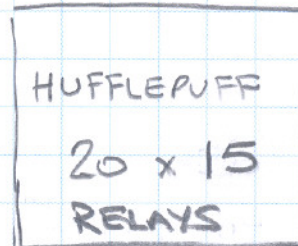 HUFFLEPUFF
20 x 15
RELAYS